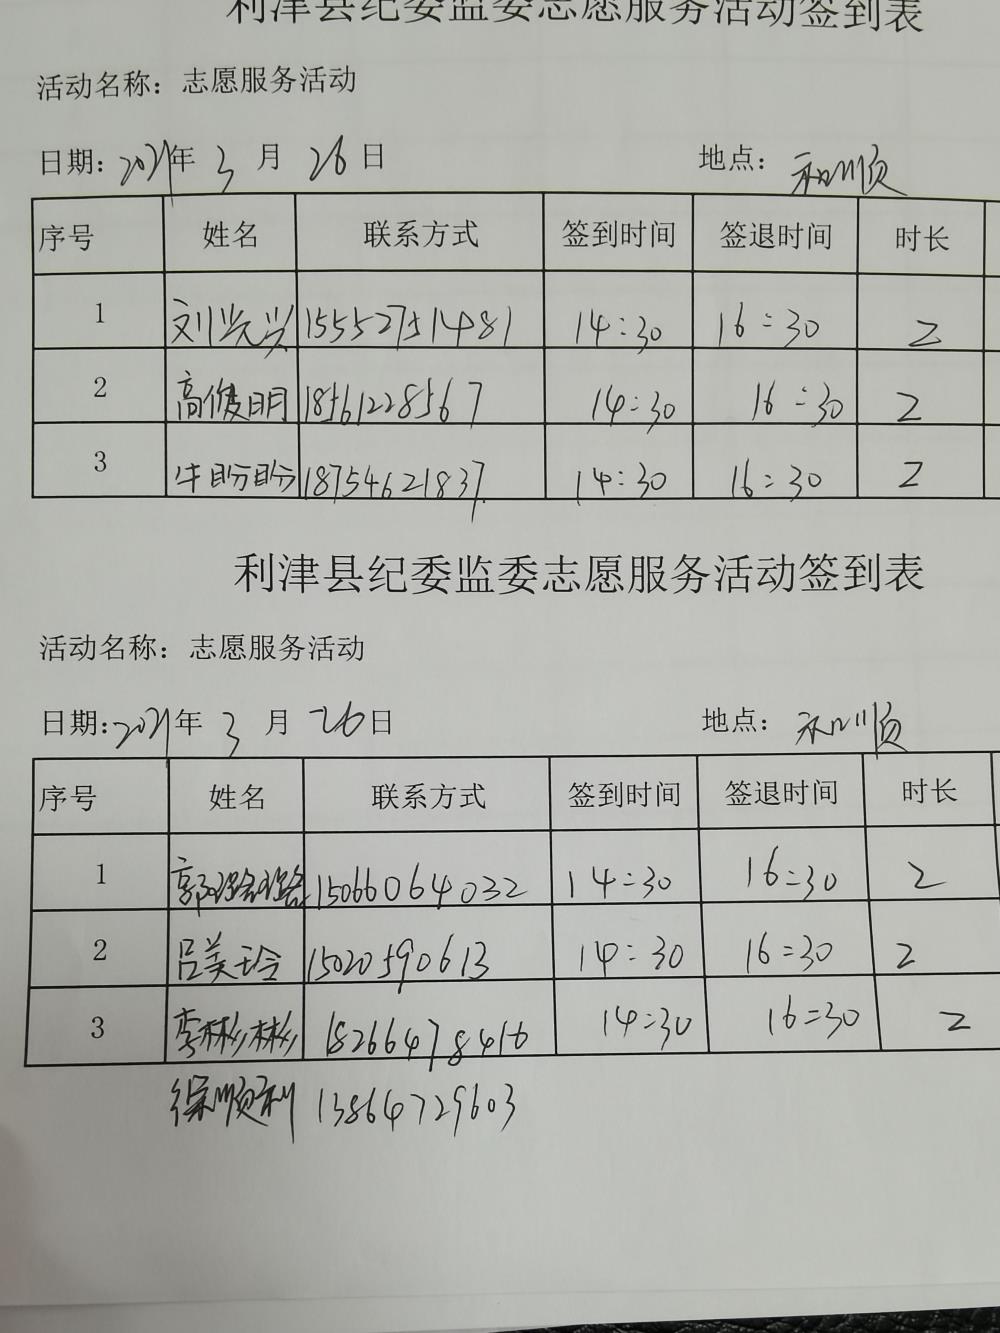 利津县纪委监委志愿服务活动签到表
活动名称：志愿服务活动
日期：2021年 3 月 26 日 地点：和顺
序号 姓名 联系方式 签到时间 签退时间 时长
1 刘光兴 15552751481 14:30 16:30 2
2 高俊明 18561228567 14:30 16:30 2
3 牛盼盼 18754621837 14:30 16:30 2
利津县纪委监委志愿服务活动签到表
活动名称：志愿服务活动
日期：2021年 3 月 26日 地点：和顺
序号 姓名 联系方式 签到时间 签退时间 时长
1 郭璐璐 15066064032 14:30 16:30 2
2 吕美玲 15020590613 14:30 16:30 2
3 李彬彬 18266478416 14:30 16:30 2
徐顺利 13864729603